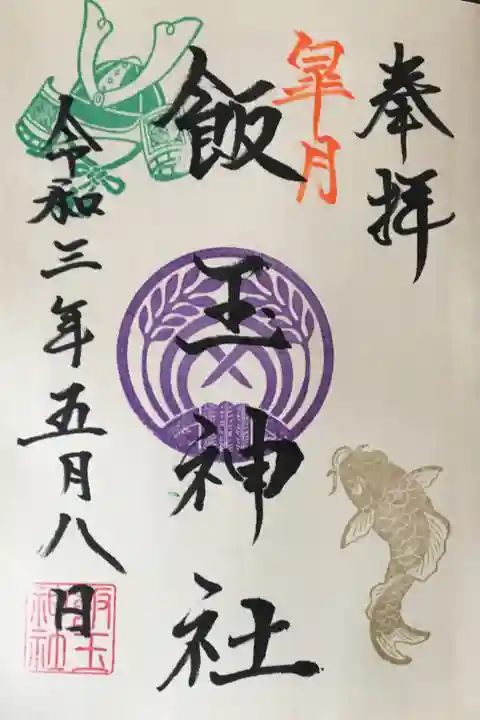 奉拝
皐月
飯玉神社
令和三年五月八日
飯玉
神社